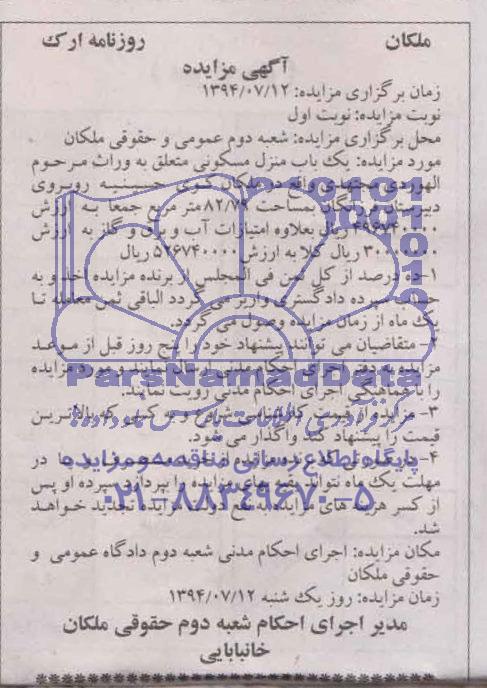 ملکان
روزنامه ارک
آگهی مزایده
زمان برگزاری مزایده: ۱۳۹۴/۰۷/۱۲
نوبت مزایده: نوبت اول
محل برگزاری مزایده: شعبه دوم عمومی و حقوقی ملکان
مورد مزایده: یک باب منزل مسکونی متعلق به وراث مرحوم
الهوردی مجتهدی واقع در ملکان کوی حسینیه روبروی
دبیرستان بمساحت ۸۲/۷۹ متر مربع جمعا به ارزش
۴۹۶۷۴۰۰۰۰ ریال بعلاوه امتیازات آب و برق و گاز به ارزش
۳۰۰۰۰۰۰۰ ریال کلا به ارزش ۵۲۶۷۴۰۰۰۰ ریال
۱- ده درصد از کل ثمن فی المجلس از برنده مزایده اخذ و به
حساب سپرده دادگستری واریز می گردد الباقی ثمن معامله تا
یک ماه از زمان مزایده وصول می گردد.
۲- متقاضیان می توانند پیشنهاد خود را پنج روز قبل از موعد
مزایده به دفتر اجرای احکام مدنی ارسال نمایند و مورد مزایده
را با هماهنگی اجرای احکام مدنی رویت نمایند.
۳- مزایده از قیمت کارشناسی شروع و به کسی که بالاترین
قیمت را پیشنهاد کند واگذار می شود.
۴- در
مهلت یک ماه نتواند بقیه بهای مزایده را بپردازد سپرده او پس
از کسر هزینه های مزایده به نفع دولت مزایده تجدید خواهد
شد.
مکان مزایده: اجرای احکام مدنی شعبه دوم دادگاه عمومی و
حقوقی ملکان
زمان مزایده: روز یک شنبه ۱۳۹۴/۰۷/۱۲
مدیر اجرای احکام شعبه دوم حقوقی ملکان
خانبابایی
ParsNamadData
پایگاه اطلاع رسانی مناقصه و مزایده
۰۲۱-۸۸۳۴۹۶۷۰-۵